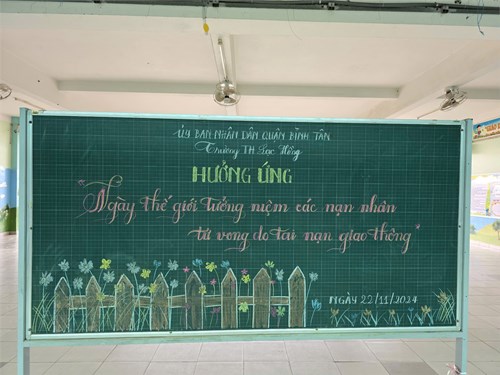 ỦY BAN NHÂN DÂN QUẬN BÌNH TÂN
Trường TH Lạc Hồng
HƯỞNG ỨNG
"Ngày thế giới tưởng niệm các nạn nhân
tử vong do tai nạn giao thông"
NGÀY 22/11/2024